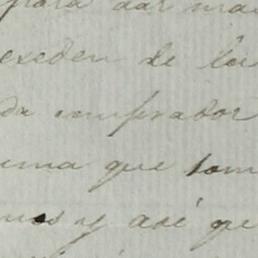 para dar ma
exceden de los
da comprador
uma que tom
nos y así que